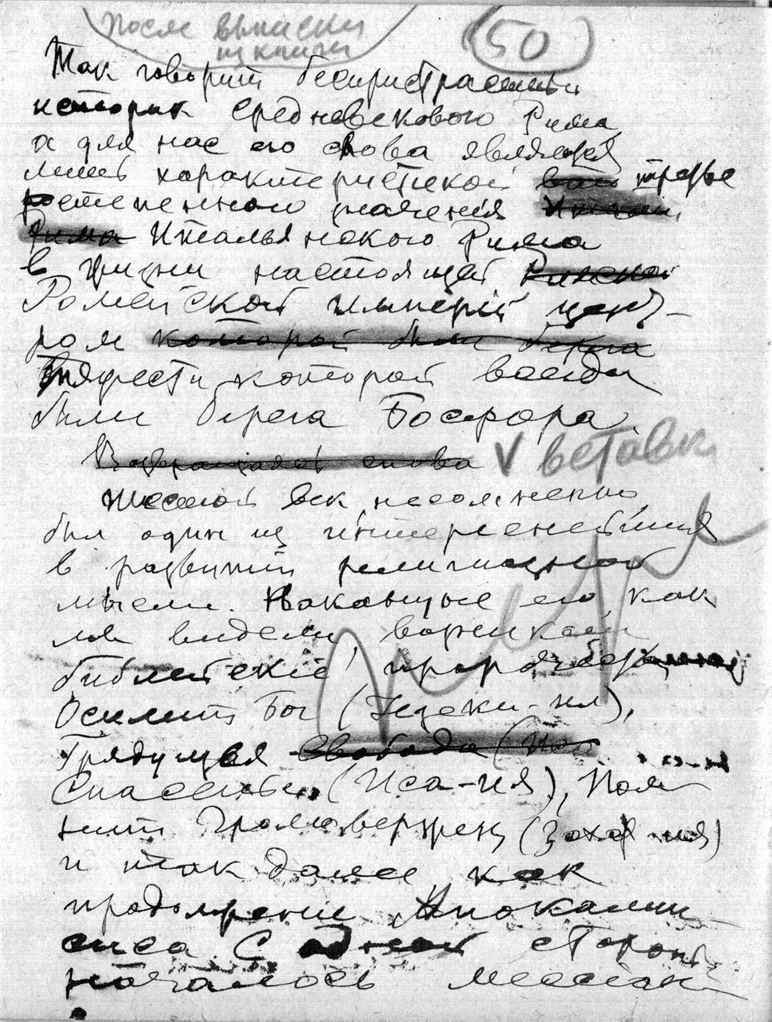 После выписки
из книги
50
Так говорит беспристрастный
историк средневекового Рима
а для нас его слова являются
лишь характеристикой третье
степенного значения
Рима Итальянского Рима
в жизни настоящей
Ромейской империи цент-
ром которой были
тяжести которой всегда
были берега Босфора.
Возвращаясь снова V вставк
Шестой век несомненно
был один из интереснейших
в развитии религиозной
мысли. Накануне его, как
мы видели возникли
библейские пророки
Осилит Бог (Иезеки-ил),
Грядущая свобода
Спасенье (Иса-ия), Пом
нит Громовержец (Заха-ия)
и так далее как
продолжение Апокалип
сиса С одной стороны
началось